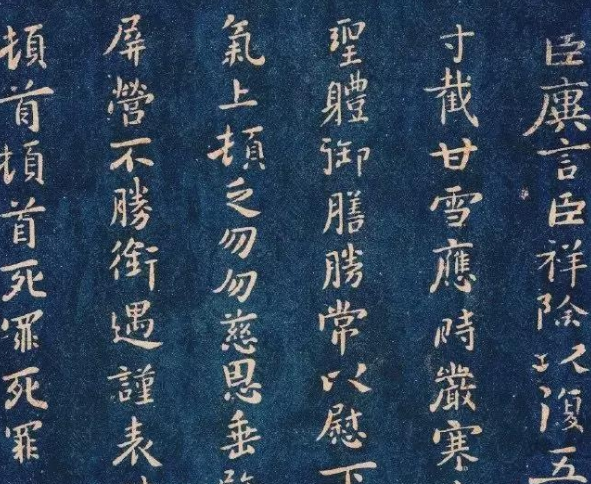 臣廙言臣祥除以復五
寸截甘雪應時嚴寒
聖體御膳勝常以慰下
氣上頓乏勿勿慈恩垂
屏營不勝銜遇謹表
頓首頓首死罪死罪